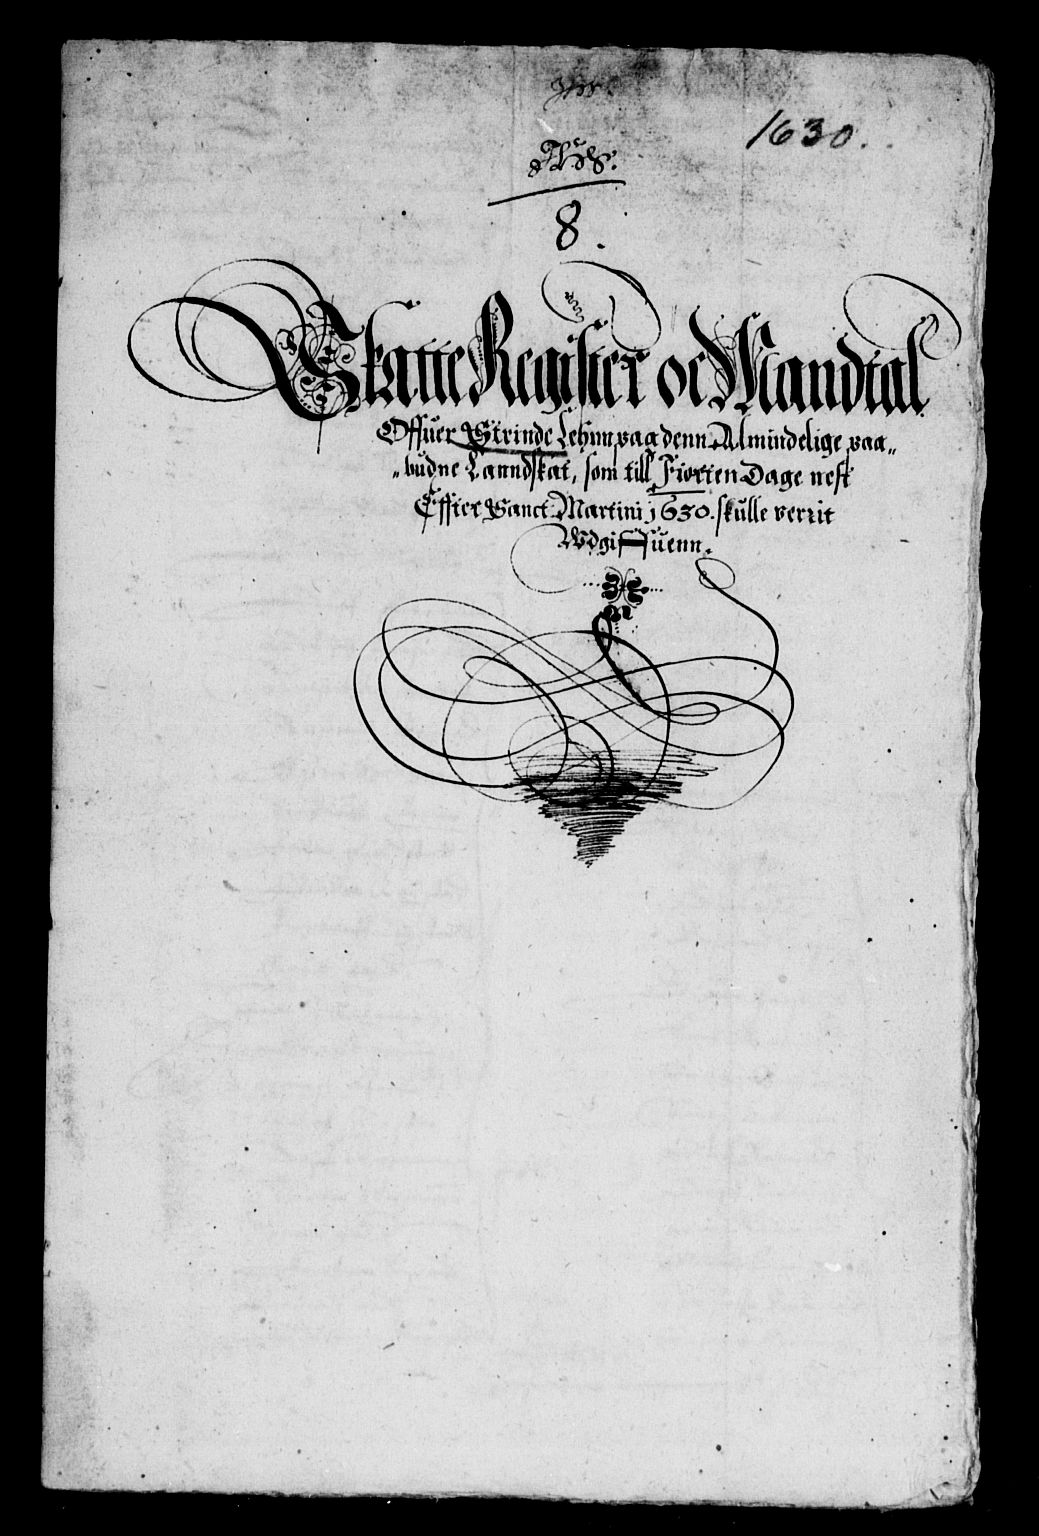 1630.
8.
Skatte Register oc Mandtal
Offuer Strinde Lehnn paa denn Almindelige paa„
„budne Lanndskat, som till Fiorten Dage nest
Effter Sanct Martini 1630. skulle verrit
Wdgiffuenn.